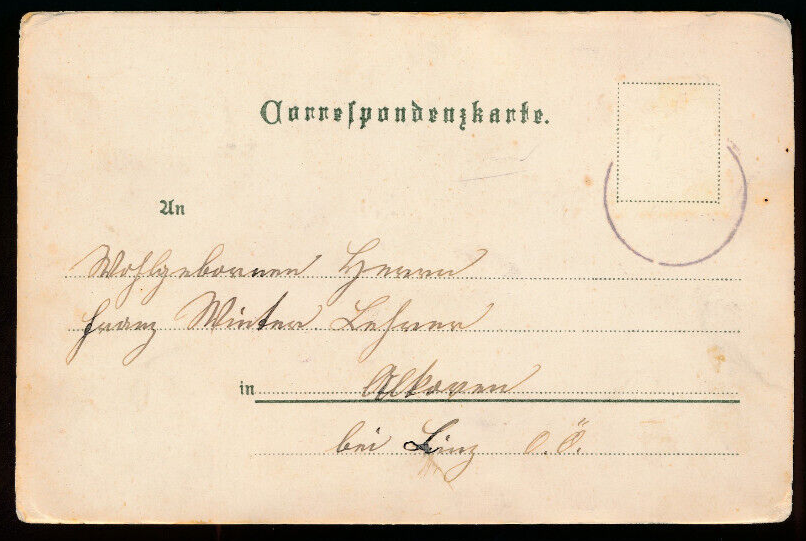 Correspondenzkarte.
An
Wohlgebornen Herrn
Franz Winter Lehrer
in Alkoven
bei Linz O.Ö.